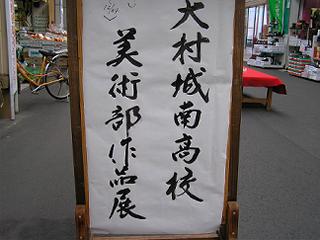 大村城南高校
美術部作品展